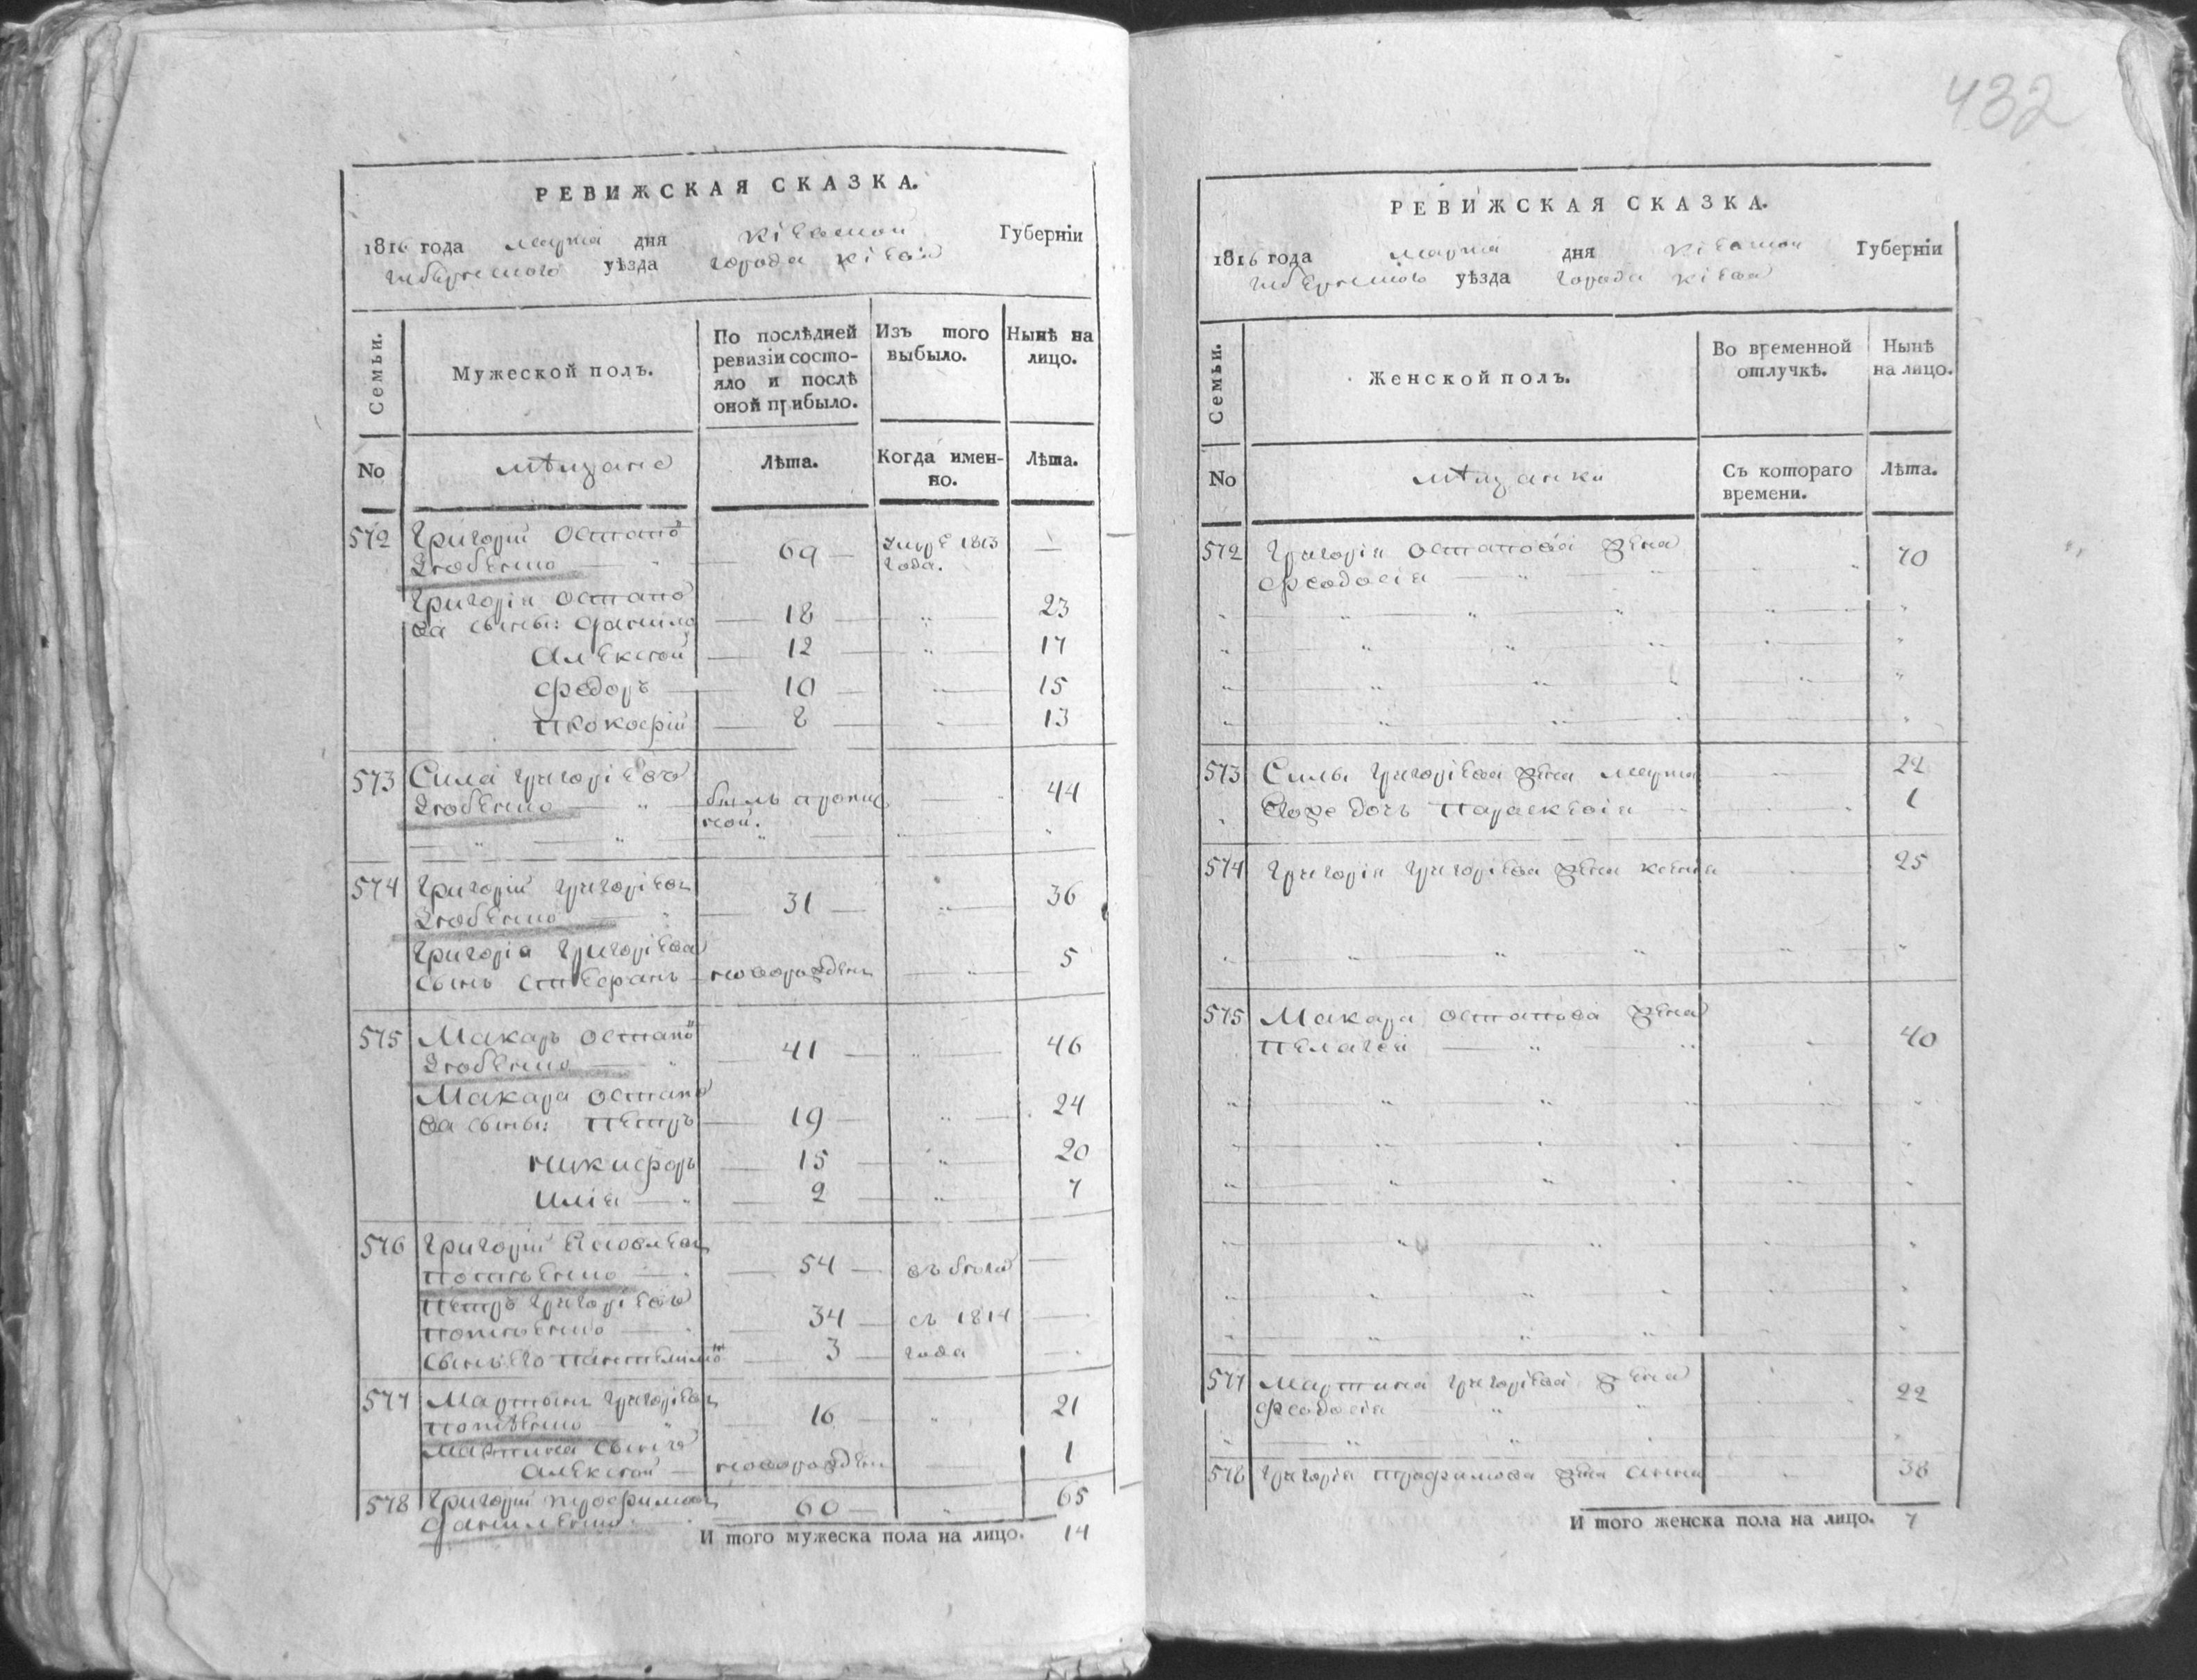 432
РЕВИЖСКАЯ СКАЗКА.
1816 года марта дня Кіевской Губерніи
уѣзда города Кіева
Семьи.
Мужеской полъ.
По послѣдней ревизіи состояло и послѣ оной прибыло.
Изъ того выбыло.
Нынѣ на лицо.
No
мѣщане
Лѣта.
Когда именно.
Лѣта.
572 Григорій Остапо
69 1813
года.
Григорія Остапо
ва сыны: Данило 18 23
Алексѣй 12 17
Федоръ 10 15
Прокофій 8 13
573 Сила Григоріевъ
былъ пропис 44
ной.
574 Григорій Григоріевъ
31 36
Григорія Григоріева
сынъ Стефанъ новорожденъ 5
575 Макаръ Остапо
41 46
Макара Остапо
ва сыны: Петръ 19 24
Никифоръ 15 20
Илія 2 7
576 Григорій Яковлевъ
54
Петръ Григоріевъ
34 съ 1814
сынъ его 3 года
577 Мартынъ Григоріевъ
16 21
Мартина сынъ
Алексѣй новорожден 1
578 Григорій Трофимовъ 60 65
И того мужеска пола на лицо. 14
РЕВИЖСКАЯ СКАЗКА.
1816 года марта дня Кіевской Губерніи
уѣзда города Кіева
Семьи.
Женской полъ.
Во временной отлучкѣ.
Нынѣ на лицо.
No
мѣщанки
Съ котораго времени.
Лѣта.
572 Григорія Остапова жена
Феодосія 70
573 Силы Григоріева жена Марта 22
дочь Параскевія 1
574 Григорія Григоріева жена Ксенія 25
575 Макара Остапова жена
Пелагея 40
577 Мартина Григоріева жена
Феодосія 22
578 Григорія Трофимова жена Анна 38
И того женска пола на лицо. 7